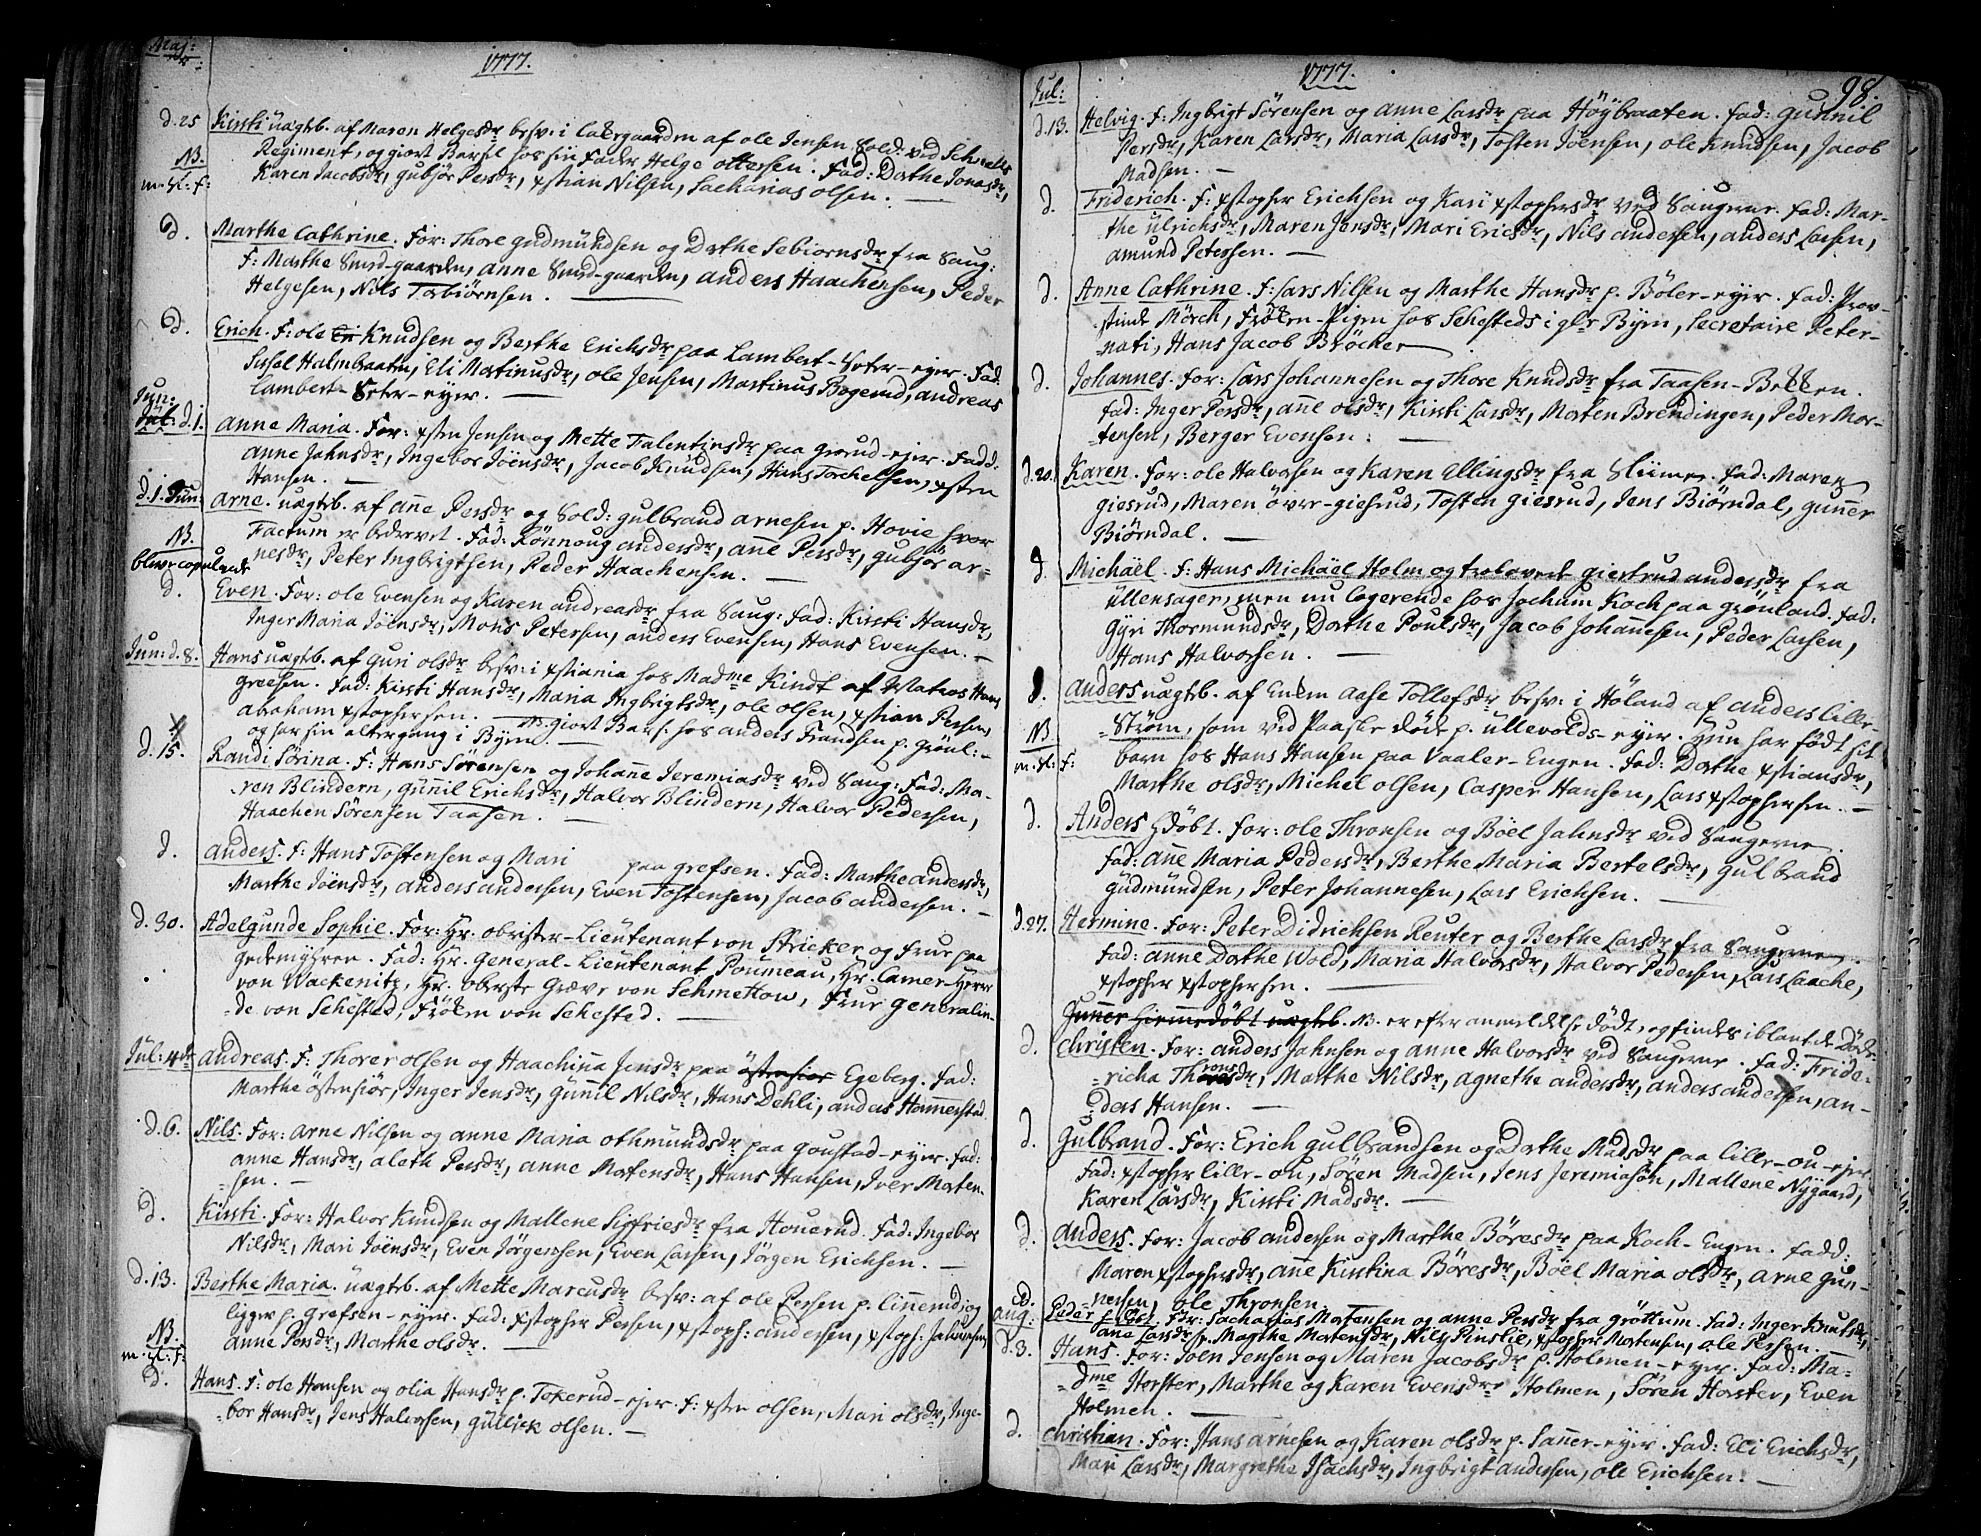 Maj:
1777.
d.25 Kirsti uægtb. af Maren Helgesdr besv: i Lakergaarden af ole Jensen Sold: ved Schnells
NB. Regiment, og giort Barsel hos sin Fader Helge ottersen. Fad: Dorthe Jonasdr,
m. st: f: Karen Jacobsdr, gubjør Persdr, xstian Nilsen, Sacharias olsen.
d. Marthe Cathrine. For: Thore gudmündsen og Dorthe Sebiørnsdr fra Saug:
F: Marthe Smed-gaarden, anne Smed-gaarden, anders Haachensen, Peder
Helgesen, Nils Torbiørnsen.
d. Erich. F: ole Knudsen og Berthe Erichsdr paa Lambert-Seter-eyer. Fad.
Sidsel Halmbraaten, Eli Mortinusdr, ole Jensen, Martinus Bogerud, andreas
Lambert-Seter-eyer.
Jun:
Jul: d.1. Anne Maria. For: xsten Jensen og Mette Falentinsdr paa Grorud-eyer. Fadd.
anne Jahnsdr, Ingebor Jöensdr, Jacob Knudsen, Hans Torchelsen, xsten
Hansen.
d.1. Jun: Arne. uægtb. af ane Persdr og Sold: gulbrand arnesen p. Hovie hvor
NB. Factum er bedrevet. Fad: Rönnoug andersdr, ane Persdr, gubjör ar-
blive copulerede nesdr, Peter Ingbrigtsen, Peder Haachensen.
d. Even. For: ole Evensen og Karen andreasdr fra Saug: Fad: Kirsti Hansdr,
Inger Maria Jöensdr, Mons Petersen, anders Evensen, Hans Evensen.
Jun: d.8. Hans uægtb. af Guri olsdr besv: i xstiania hos Madme Kindt af Matros Hans
greesen. Fad: Kirsti Hansdr, Maria Ingbrigtsdr, ole olsen, xstian Persen,
abraham xstophersen. NB. giort Bars: hos anders Frandsen p. Grönl:
og har sin altergang i Byen.
d.15. Randi Sörina. F: Hans Sörensen og Johane Jeremiasdr ved Saug: Fad: Ma-
ren Blindern, gunnil Erichsdr, Halvor Blindern, Halvor Pedersen,
Haachen Sörensen Taasen.
d. Anders. F: Hans Tostensen og Mari paa grefsen. Fad: Marthe andersdr,
Marthe Jöensdr, anders andersen, Even Tostensen, Jacob andersen.
d.30. Adelgunde Sophie. For: Hr. obrister-Lieutenant von Stricker og Frue paa
gedemyhren. Fad: Hr. General-Lieutenant Poumeau, Hr. Camer-Herr
von Wackenitz, Hr. oberste Græve von Schmettow, Frue generalin-
de von Sehested, Fröken von Sehested.
Jul: 4de Andreas. F: Thorer olsen og Haachina Jensdr paa östensiör Egeberg. Fad:
Marthe östensiör, Inger Jensdr, Gunnil Nilsdr, Hans Dehli, anders Hammerstad.
d.6. Nils. For: Arne Nilsen og anne Maria othmündsdr paa Goustad-eyer. Fad:
anne Hansdr, aleth Persdr, anne Mortensdr, Hans Hansen, Iver Morten-
sen.
d. Kirsti. For: Halvor Knudsen og Mallene Sigfriesdr fra Houerud. Fad: Ingebor
Nilsdr, Mari Jöensdr, Even Jörgensen, Even Larsen, Jörgen Erichsen.
d.13. Berthe Maria. üægtb. af Mette Marcusdr besv: af ole Persen p. Linnerud, og
ligger p. Grefsen-eyer. Fad: xstopher Persen, xstoph: andersen, xstoph: Johansen,
NB. anne Persdr, Marthe olsdr.
m. st: f:
d. Hans. F: ole Hansen og olia Hansdr p. Tokerud-ejer. F: xsten olsen, Mari olsdr, Inge-
bor Hansdr, Jens Halvorsen, Gullick olsen.
Jul:
1777.
98.
d.13. Helvig. F: Ingbrigt Sörensen og Anne Larsdr paa Höybraaten. Fad: Gunnil
Persdr, Karen Larsdr, Maria Larsdr, Tosten Jöensen, ole Knudsen, Jacob
Madsen.
d. Friderich. F: xstopher Erichsen og Kari xstophersdr ved Saugerne. Fad: Mar-
the ulrichsdr, Maren Jensdr, Mari Ericsdr, Nils andersen, anders Larsen,
amund Petersen.
d. Anne Cathrine. F: Lars Nilsen og Marthe Hansdr p. Böler-eyer. Fad: Prov-
stinde Mörch, Fröken-Pigen hos Sehesteds i glr Byen, Secretaire Peter-
nati, Hans Jacob Bröcher
d. Johannes. For: Lars Johannesen og Thore Knudsdr fra Taasen-Bekken.
Fad: Inger Persdr, ane olsdr, Kirsti Larsdr, Morten Brendingen, Peder Mor-
tensen, Berger Evensen:
d.20. Karen. For: ole Halvorsen og Karen Ellingsdr fra Sliimer. Fad: Maren
giesrud, Maren över-giesrud, Tosten Giesrud, Jens Biörndal, gunner
Biörndal.
d. Michäel. F: Hans Michäel Holm og trolovede giertrud andersdr fra
Ullensager, men nu logerende hos Jochum Koch paa Grönland. Fad:
Gyri Thormundsdr, Dorthe Poulsdr, Jacob Johannesen, Peder Larsen,
Hans Halvorsen.
d. Anders uægtb. af Enken Aase Tollofsdr besv: i Höland af anders Lille-
NB. Ström, som ved Paaske döde p. Ullevolds-eyer. Hun har födt sit
m. st: f: barn hos Hans Hansen paa Vaaler-Engen. Fad: Dorthe xstiansdr,
Marthe olsdr, Michel olsen, Casper Hansen, Lars xstophersen.
d. Anders Hdöbt. For: ole Thronsen og Böel Jahnsdr ved Saugerne.
Fad: Ane Maria Pedersdr, Berthe Maria Bertelsdr, Gulbrand
Gudmündsen, Peter Johannesen, Lars Erichsen.
d.27. Hermine. For: Peter Didrichsen Reuter og Berthe Larsdr fra Saugerne.
Fad: anne Dorthe Wold, Maria Halvorsdr, Halvor Pedersen, Lars Laache,
xstopher xstophersen.
Gunner hiemmedöbt uægtb. NB. er efter anmeldelse dödt, og findes iblant de Döde
d. Christen. For: anders Jahnsen og anne Halvorsdr ved Saugerne. Fad: Fride-
richa Thoresdr, Marthe Nilsdr, agnethe andersdr, anders andersen, an-
ders Hansen.
d. Gulbrand. For: Erich gulbrandsen og Dorthe Madsdr paa Lille-ou-ejer
Fad: xstopher Lille-ou, Sören Madsen, Jens Jeremiasön, Mallene Nygaard,
Karen Larsdr, Kirsti Madsdr.
d. Anders. For: Jacob andersen og Marthe Böresdr paa Koch-Engen. Fadd:
Maren xstophersdr, ane Kirstina Böresdr, Böel Maria olsdr, Arne Gun-
nersen, ole Thronsen
d. Peder Hdöbt. For: Sacharias Mortensen og anne Persdr fra gröttum. Fad: Inger Knutsdr,
aug: ane Larsdr, Magthe Mortensdr, Nils Pinslie, xstopher Mortensen, ole Persen.
d.3. Hans. For: Joen Jensen og Maren Jacobsdr p. Holmen-eyer. Fad: Ma-
dme Horster, Marthe og Karen Evensdr Holmen, Sören Horster, Even
Holmen.
d. Christian. For: Hans arnesen og Karen olsdr p. Saner-eyer. Fad: Eli Erichsdr,
Mari Larsdr, Margrethe Isachsdr, Ingbrigt andersen, ole Erichsen.